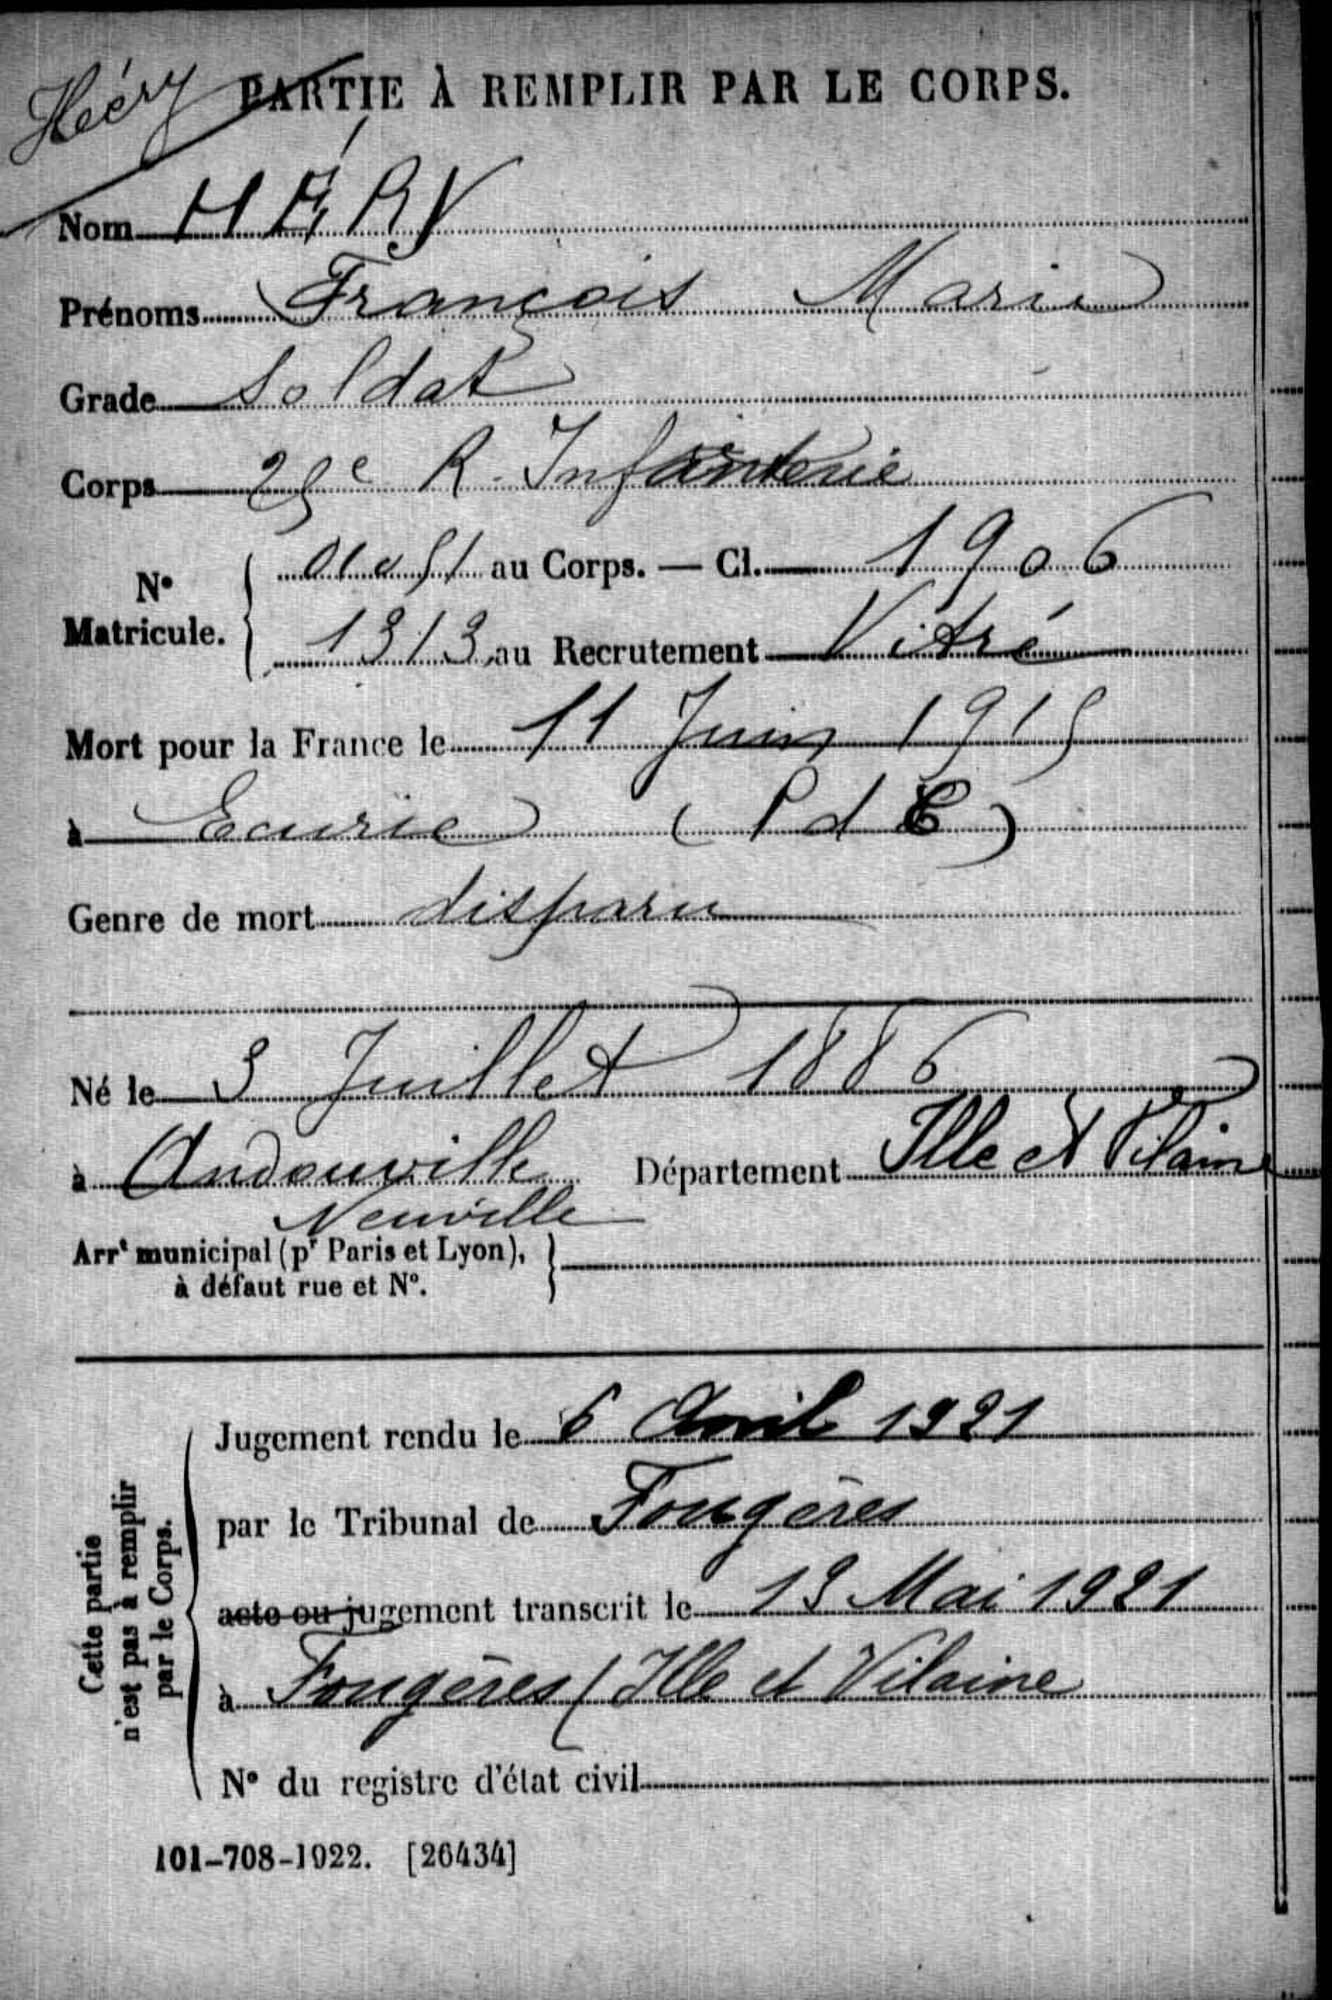 Héry
PARTIE À REMPLIR PAR LE CORPS.
Nom HÉRY
Prénoms François Marie
Grade Soldat
Corps 25e R. Infanterie
N° Matricule. { 01051 au Corps. — Cl. 1906
1313 au Recrutement Vitré
Mort pour la France le 11 Juin 1915
à Ecurie (P d C)
Genre de mort disparu
Né le 5 Juillet 1886
à Andouville Département Ille et Vilaine
Neuville
Arrt municipal (pr Paris et Lyon),
à défaut rue et N°.
Cette partie
n'est pas à remplir
par le Corps.
Jugement rendu le 6 Avril 1921
par le Tribunal de Fougères
acte ou jugement transcrit le 13 Mai 1921
à Fougères (Ille et Vilaine
N° du registre d'état civil
101-708-1922. [26434]